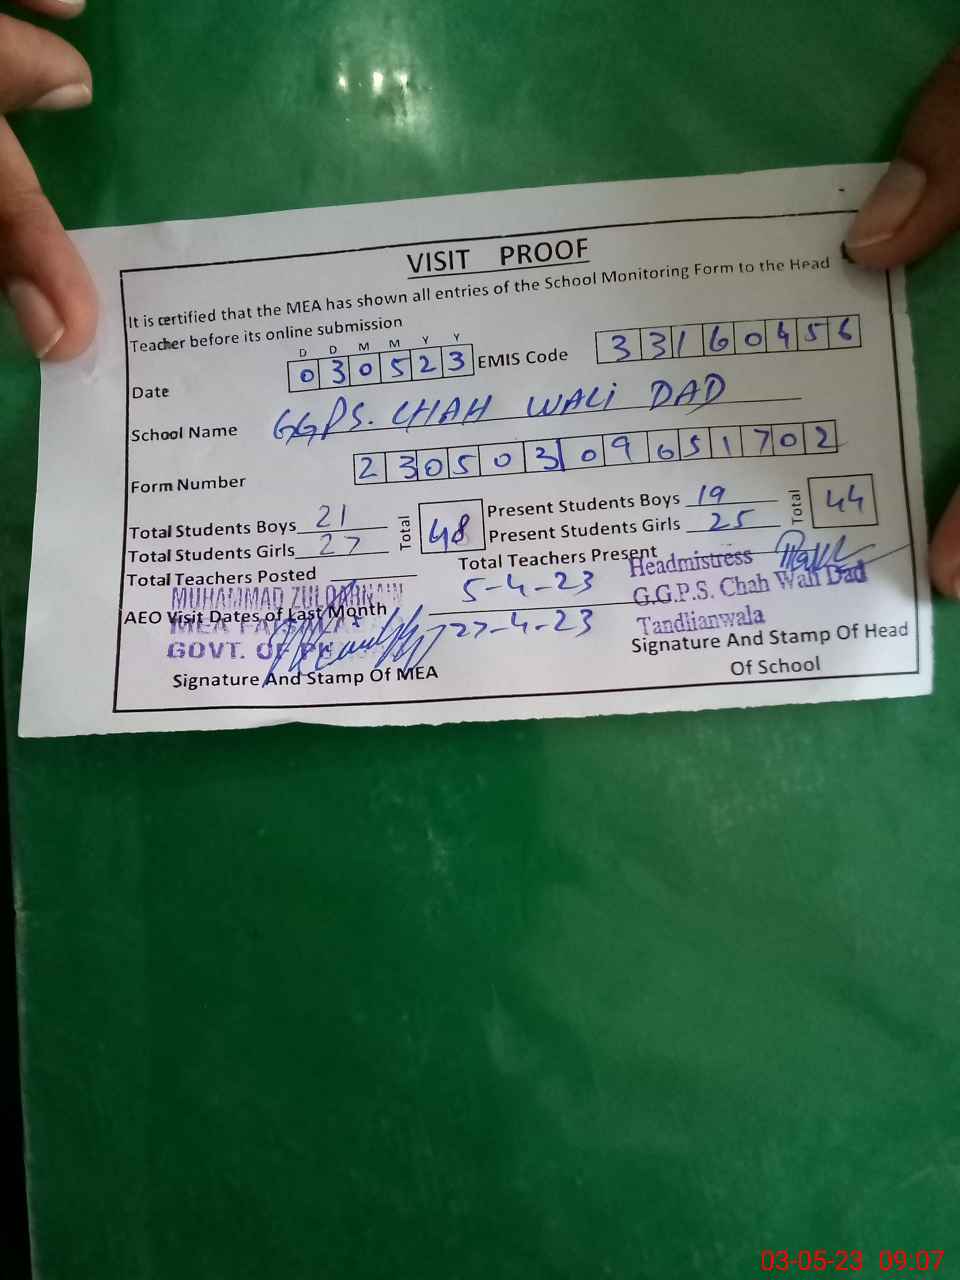 VISIT PROOF
It is certified that the MEA has shown all entries of the School Monitoring Form to the Head
Teacher before its online submission
D D M M Y Y
Date 030523 EMIS Code 33160456
School Name GGPS. CHAH WALI DAD
Form Number 23050309651702
Total Students Boys 21 Total 48 Present Students Boys 19 Total 44
Total Students Girls 27 Present Students Girls 25
Total Teachers Posted Total Teachers Present
Headmistress
G.G.P.S. Chah Wali Dad
Tandlianwala
MUHAMMAD ZULQARNAIN
AEO Visit Dates of Last Month 5-4-23
27-4-23
MEA
GOVT. OF
Signature And Stamp Of MEA
Signature And Stamp Of Head
Of School
03-05-23 09:07